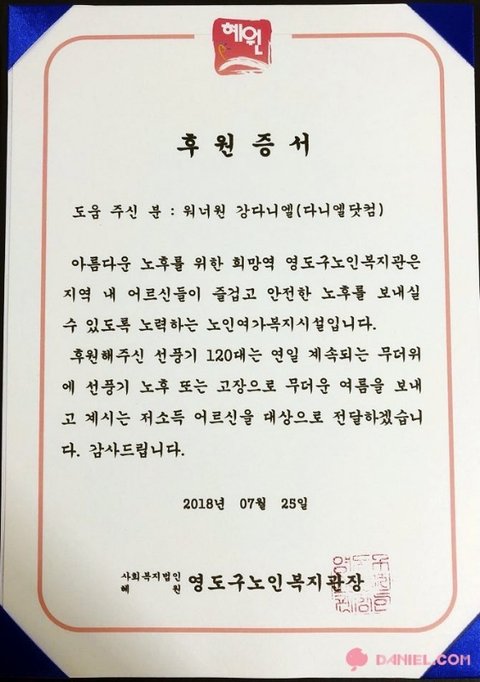 혜원
후원증서
도움 주신 분 : 워너원 강다니엘(다니엘닷컴)
아름다운 노후를 위한 희망역 영도구노인복지관은
지역 내 어르신들이 즐겁고 안전한 노후를 보내실
수 있도록 노력하는 노인여가복지시설입니다.
후원해주신 선풍기 120대는 연일 계속되는 무더위
에 선풍기 노후 또는 고장으로 무더운 여름을 보내
고 계시는 저소득 어르신을 대상으로 전달하겠습니
다. 감사드립니다.
2018년 07월 25일
사회복지법인
혜 원
영도구노인복지관장
DANIEL.COM